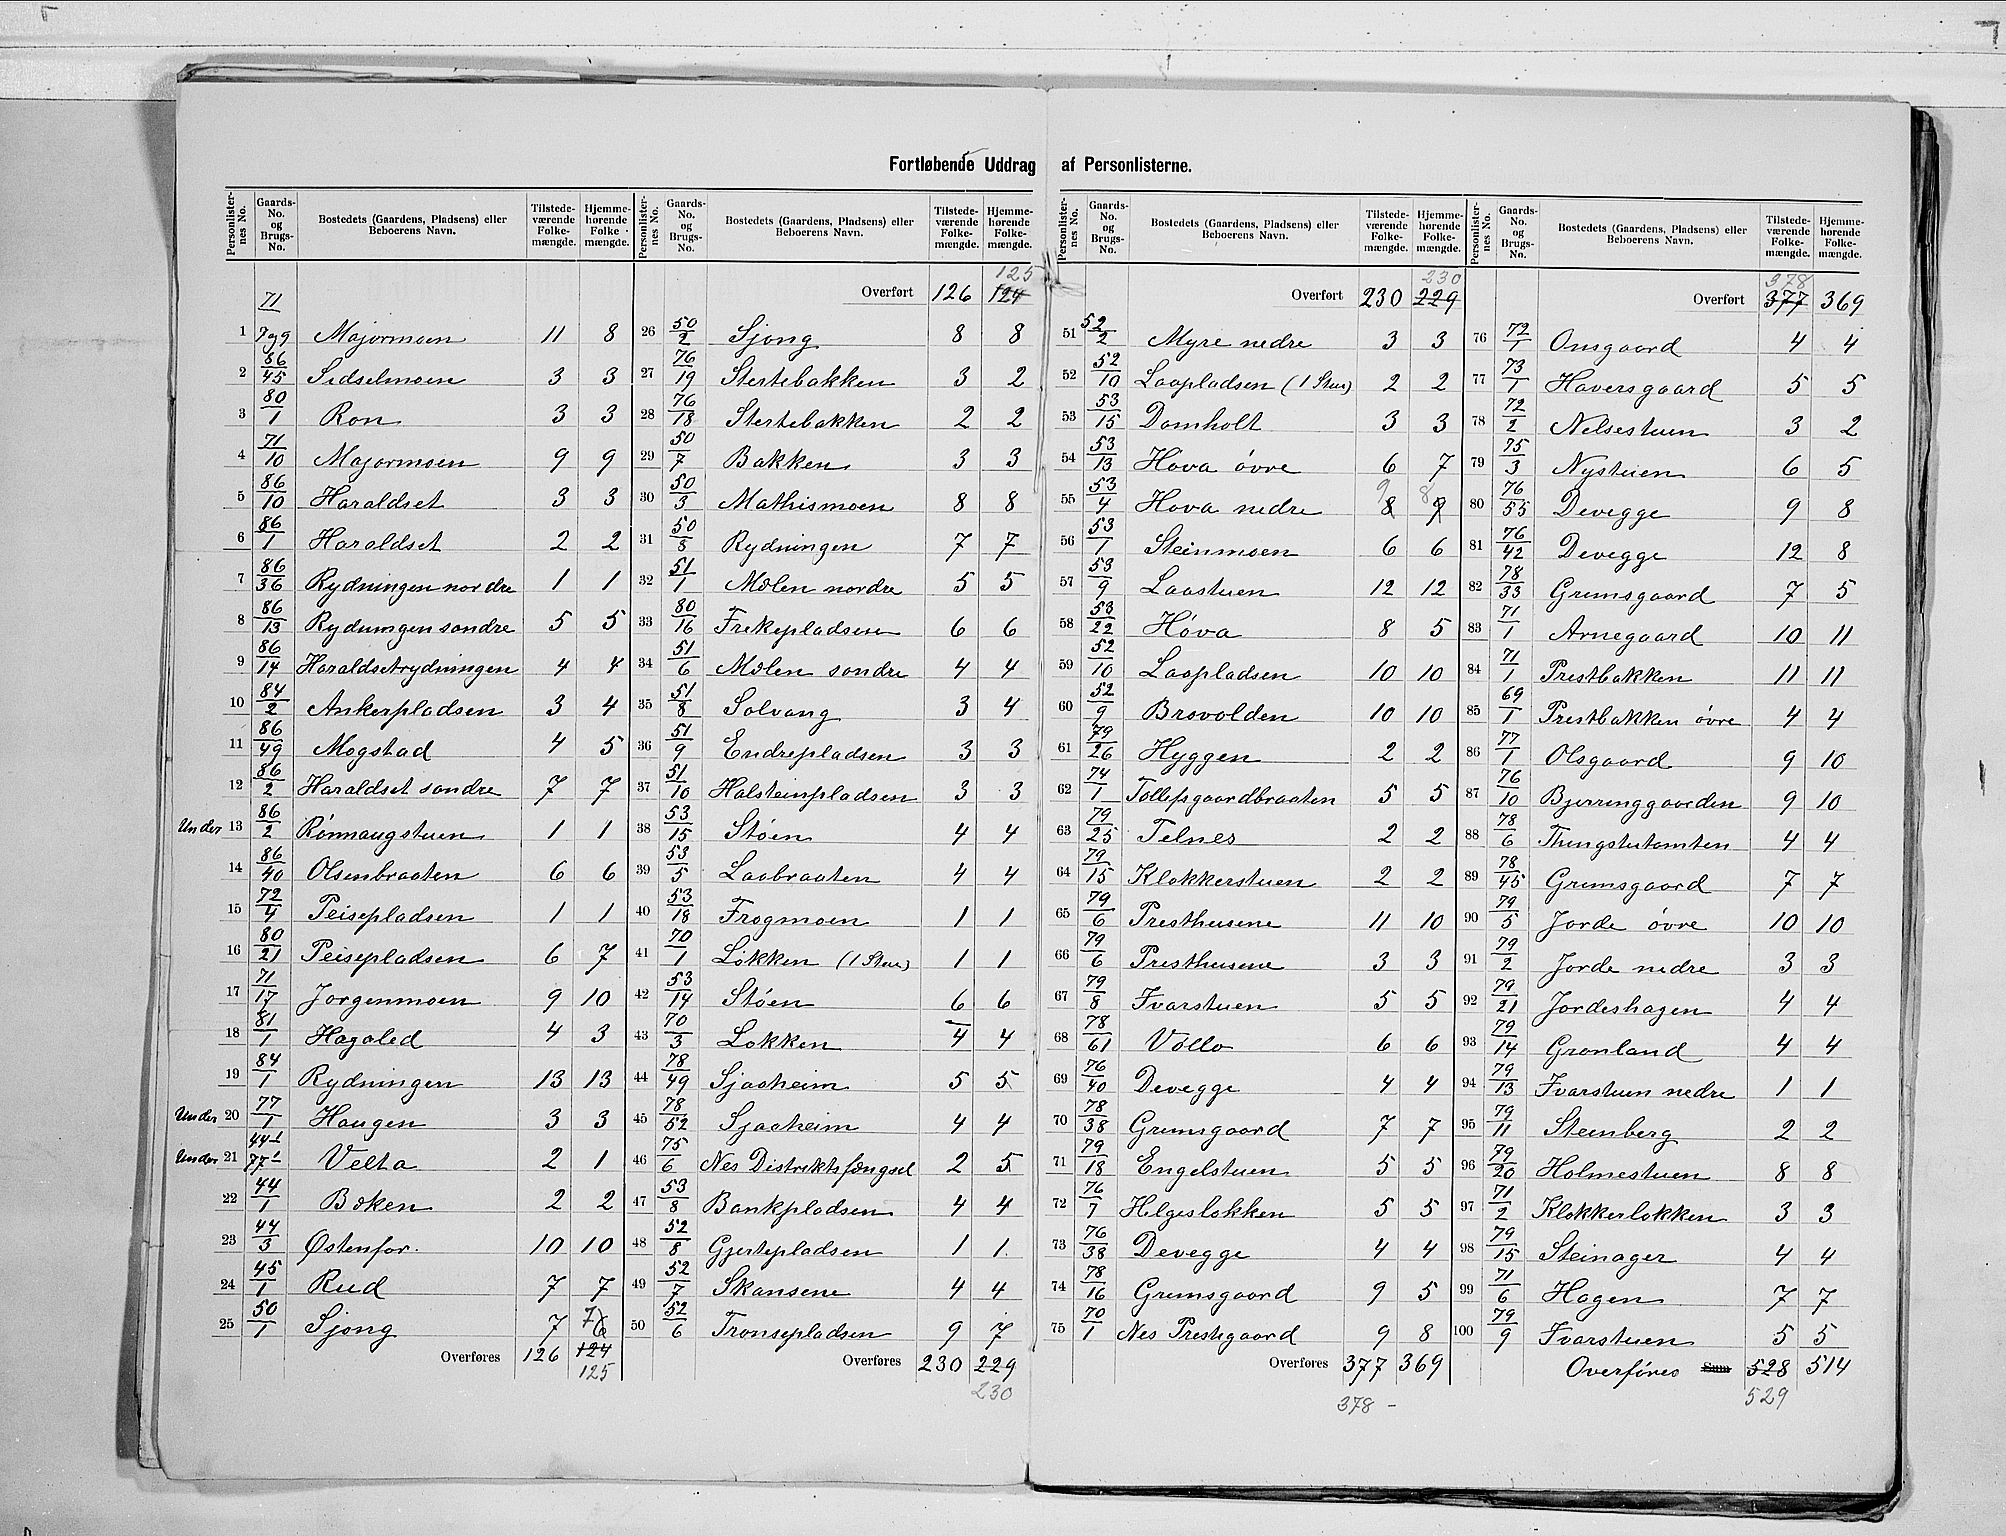 Fortløbende Uddrag af Personlisterne.
Personlister-nes No. Gaards-No. og Brugs-No. Bostedets (Gaardens, Pladsens) eller Beboerens Navn. Tilstede-værende Folke-mængde. Hjemme-hørende Folke-mængde.
71
1 7 og 9 Majormoen 11 8
2 86/45 Sidselmoen 3 3
3 80/1 Ron 3 3
4 71/10 Majormoen 9 9
5 86/10 Haraldset 3 3
6 86/1 Haraldset 2 2
7 86/36 Rydningen nordre 1 1
8 86/13 Rydningen søndre 5 5
9 86/14 Haraldsetrydningen 4 4
10 84/2 Ankerpladsen 3 4
11 86/49 Mogstad 4 5
12 86/2 Haraldset søndre 7 7
Under 13 86/2 Rønnaugstuen 1 1
14 86/40 Olsenbraaten 6 6
15 72/4 Peisepladsen 1 1
16 80/21 Peisepladsen 6 7
17 71/17 Jørgenmoen 9 10
18 81/1 Hagaled 4 3
19 84/1 Rydningen 13 13
Under 20 77/1 Haugen 3 3
Under 21 44/1 77/1 Velta 2 1
22 44/1 Bæken 2 2
23 44/3 Østenfor. 10 10
24 45/1 Rud 7 7
25 50/1 Sjong 7 7 6
Overføres 126 124
125
Personlister-nes No. Gaards-No. og Brugs-No. Bostedets (Gaardens, Pladsens) eller Beboerens Navn. Tilstede-værende Folke-mængde. Hjemme-hørende Folke-mængde.
125
Overført 126 124
26 50/2 Sjong 8 8
27 76/19 Stertebakken 3 2
28 76/18 Stertebakken 2 2
29 50/7 Bakken 3 3
30 50/3 Mathismoen 8 8
31 50/8 Rydningen 7 7
32 51/1 Mølen nordre 5 5
33 80/16 Frekepladsen 6 6
34 51/6 Mølen søndre 4 4
35 51/8 Solvang 3 4
36 51/9 Endrepladsen 3 3
37 51/10 Halsteinpladsen 3 3
38 53/15 Støen 4 4
39 53/5 Laabraaten 4 4
40 53/18 Frogmoen 1 1
41 70/1 Løkken (1 Stue) 1 1
42 53/14 Støen 6 6
43 70/3 Løkken 4 4
44 78/49 Sjaaheim 5 5
45 78/52 Sjaaheim 4 4
46 75/6 Nes Distriktsfængsel 2 5
47 53/8 Bankpladsen 4 4
48 52/8 Gjertepladsen 1 1
49 52/7 Skansene 4 4
50 52/6 Tronsepladsen 9 7
Overføres 230 229
230
Personlister-nes No. Gaards-No. og Brugs-No. Bostedets (Gaardens, Pladsens) eller Beboerens Navn. Tilstede-værende Folke-mængde. Hjemme-hørende Folke-mængde.
230
Overført 230 229
51 52/2 Myre nedre 3 3
52 52/10 Laapladsen (1 Stue) 2 2
53 53/15 Domholt 3 3
54 53/13 Hova øvre 6 7
55 53/4 Hova nedre 9 8 8 9
56 53/1 Steinmoen 6 6
57 53/9 Laastuen 12 12
58 53/22 Høva 8 5
59 52/10 Laapladsen 10 10
60 52/9 Brovolden 10 10
61 79/26 Hyggen 2 2
62 74/1 Tollefsgaardbraaten 5 5
63 79/25 Telnes 2 2
64 79/15 Klokkerstuen 2 2
65 79/6 Presthusene 11 10
66 79/6 Presthusene 3 3
67 79/8 Ivarstuen 5 5
68 78/61 Vollo 6 6
69 76/40 Devegge 4 4
70 78/38 Grimsgaard 7 7
71 79/18 Engelstuen 5 5
72 76/7 Helgesløkken 5 5
73 76/38 Devegge 4 4
74 78/16 Grimsgaard 9 5
75 70/1 Nes Prestegaard 9 8
Overføres 377 369
378 -
Personlister-nes No. Gaards-No. og Brugs-No. Bostedets (Gaardens, Pladsens) eller Beboerens Navn. Tilstede-værende Folke-mængde. Hjemme-hørende Folke-mængde.
378
Overført 377 369
76 72/1 Onsgaard 4 4
77 73/1 Haversgaard 5 5
78 72/2 Nelsestuen 3 2
79 75/3 Nystuen 6 5
80 76/55 Devegge 9 8
81 76/42 Devegge 12 8
82 78/33 Grimsgaard 7 5
83 71/1 Arnegaard 10 11
84 71/1 Prestbakken 11 11
85 69/1 Prestbakken øvre 4 4
86 77/1 Olsgaard 9 10
87 76/10 Bjerringgaarden 9 10
88 78/6 Thingstutomten 4 4
89 78/45 Grimsgaard 7 7
90 79/5 Jorde øvre 10 10
91 79/2 Jorde nedre 3 3
92 79/21 Jordeshagen 4 4
93 79/14 Grønland 4 4
94 79/13 Ivarstuen nedre 1 1
95 79/11 Steinberg 2 2
96 79/20 Holmestuen 8 8
97 71/2 Klokkerløkken 3 3
98 79/15 Steinager 4 4
99 71/6 Hagen 7 7
100 79/9 Ivarstuen 5 5
Overføres Sum 528 514
529